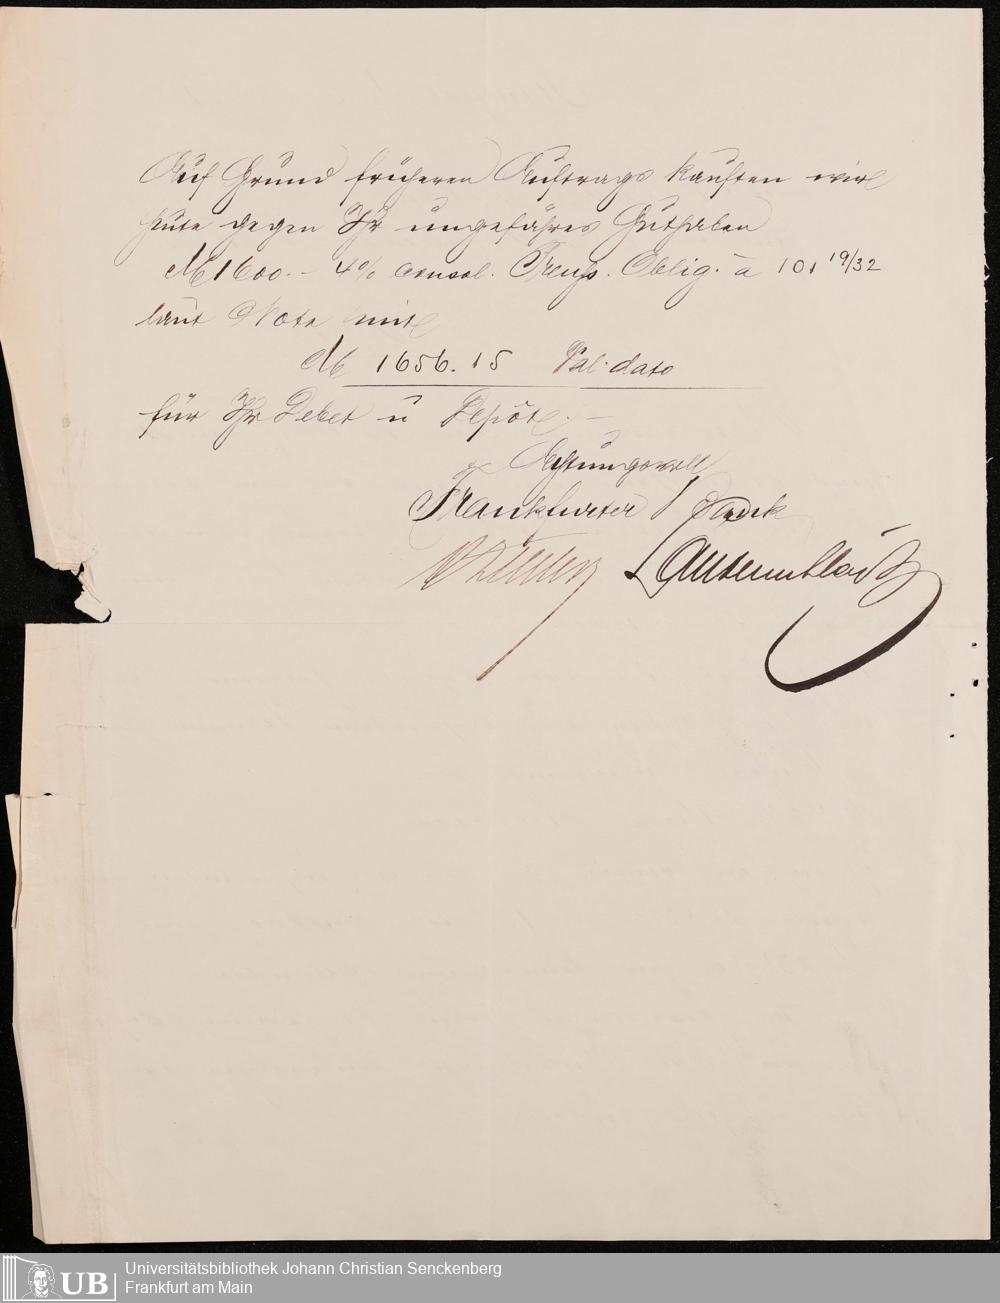 Auf Grund früheren Auftrags kauften wir
heute gegen Ihr ungefähres Guthaben
M 1600.– 4% consol. Preuss. Oblig. à 101 19/32
laut Nota mit
M 1656.15 Val. dato
für Ihr Debet u Depôt. –
Achtungsvoll
Frankfurter Bank
Lautenschläger
UB
Universitätsbibliothek Johann Christian Senckenberg
Frankfurt am Main